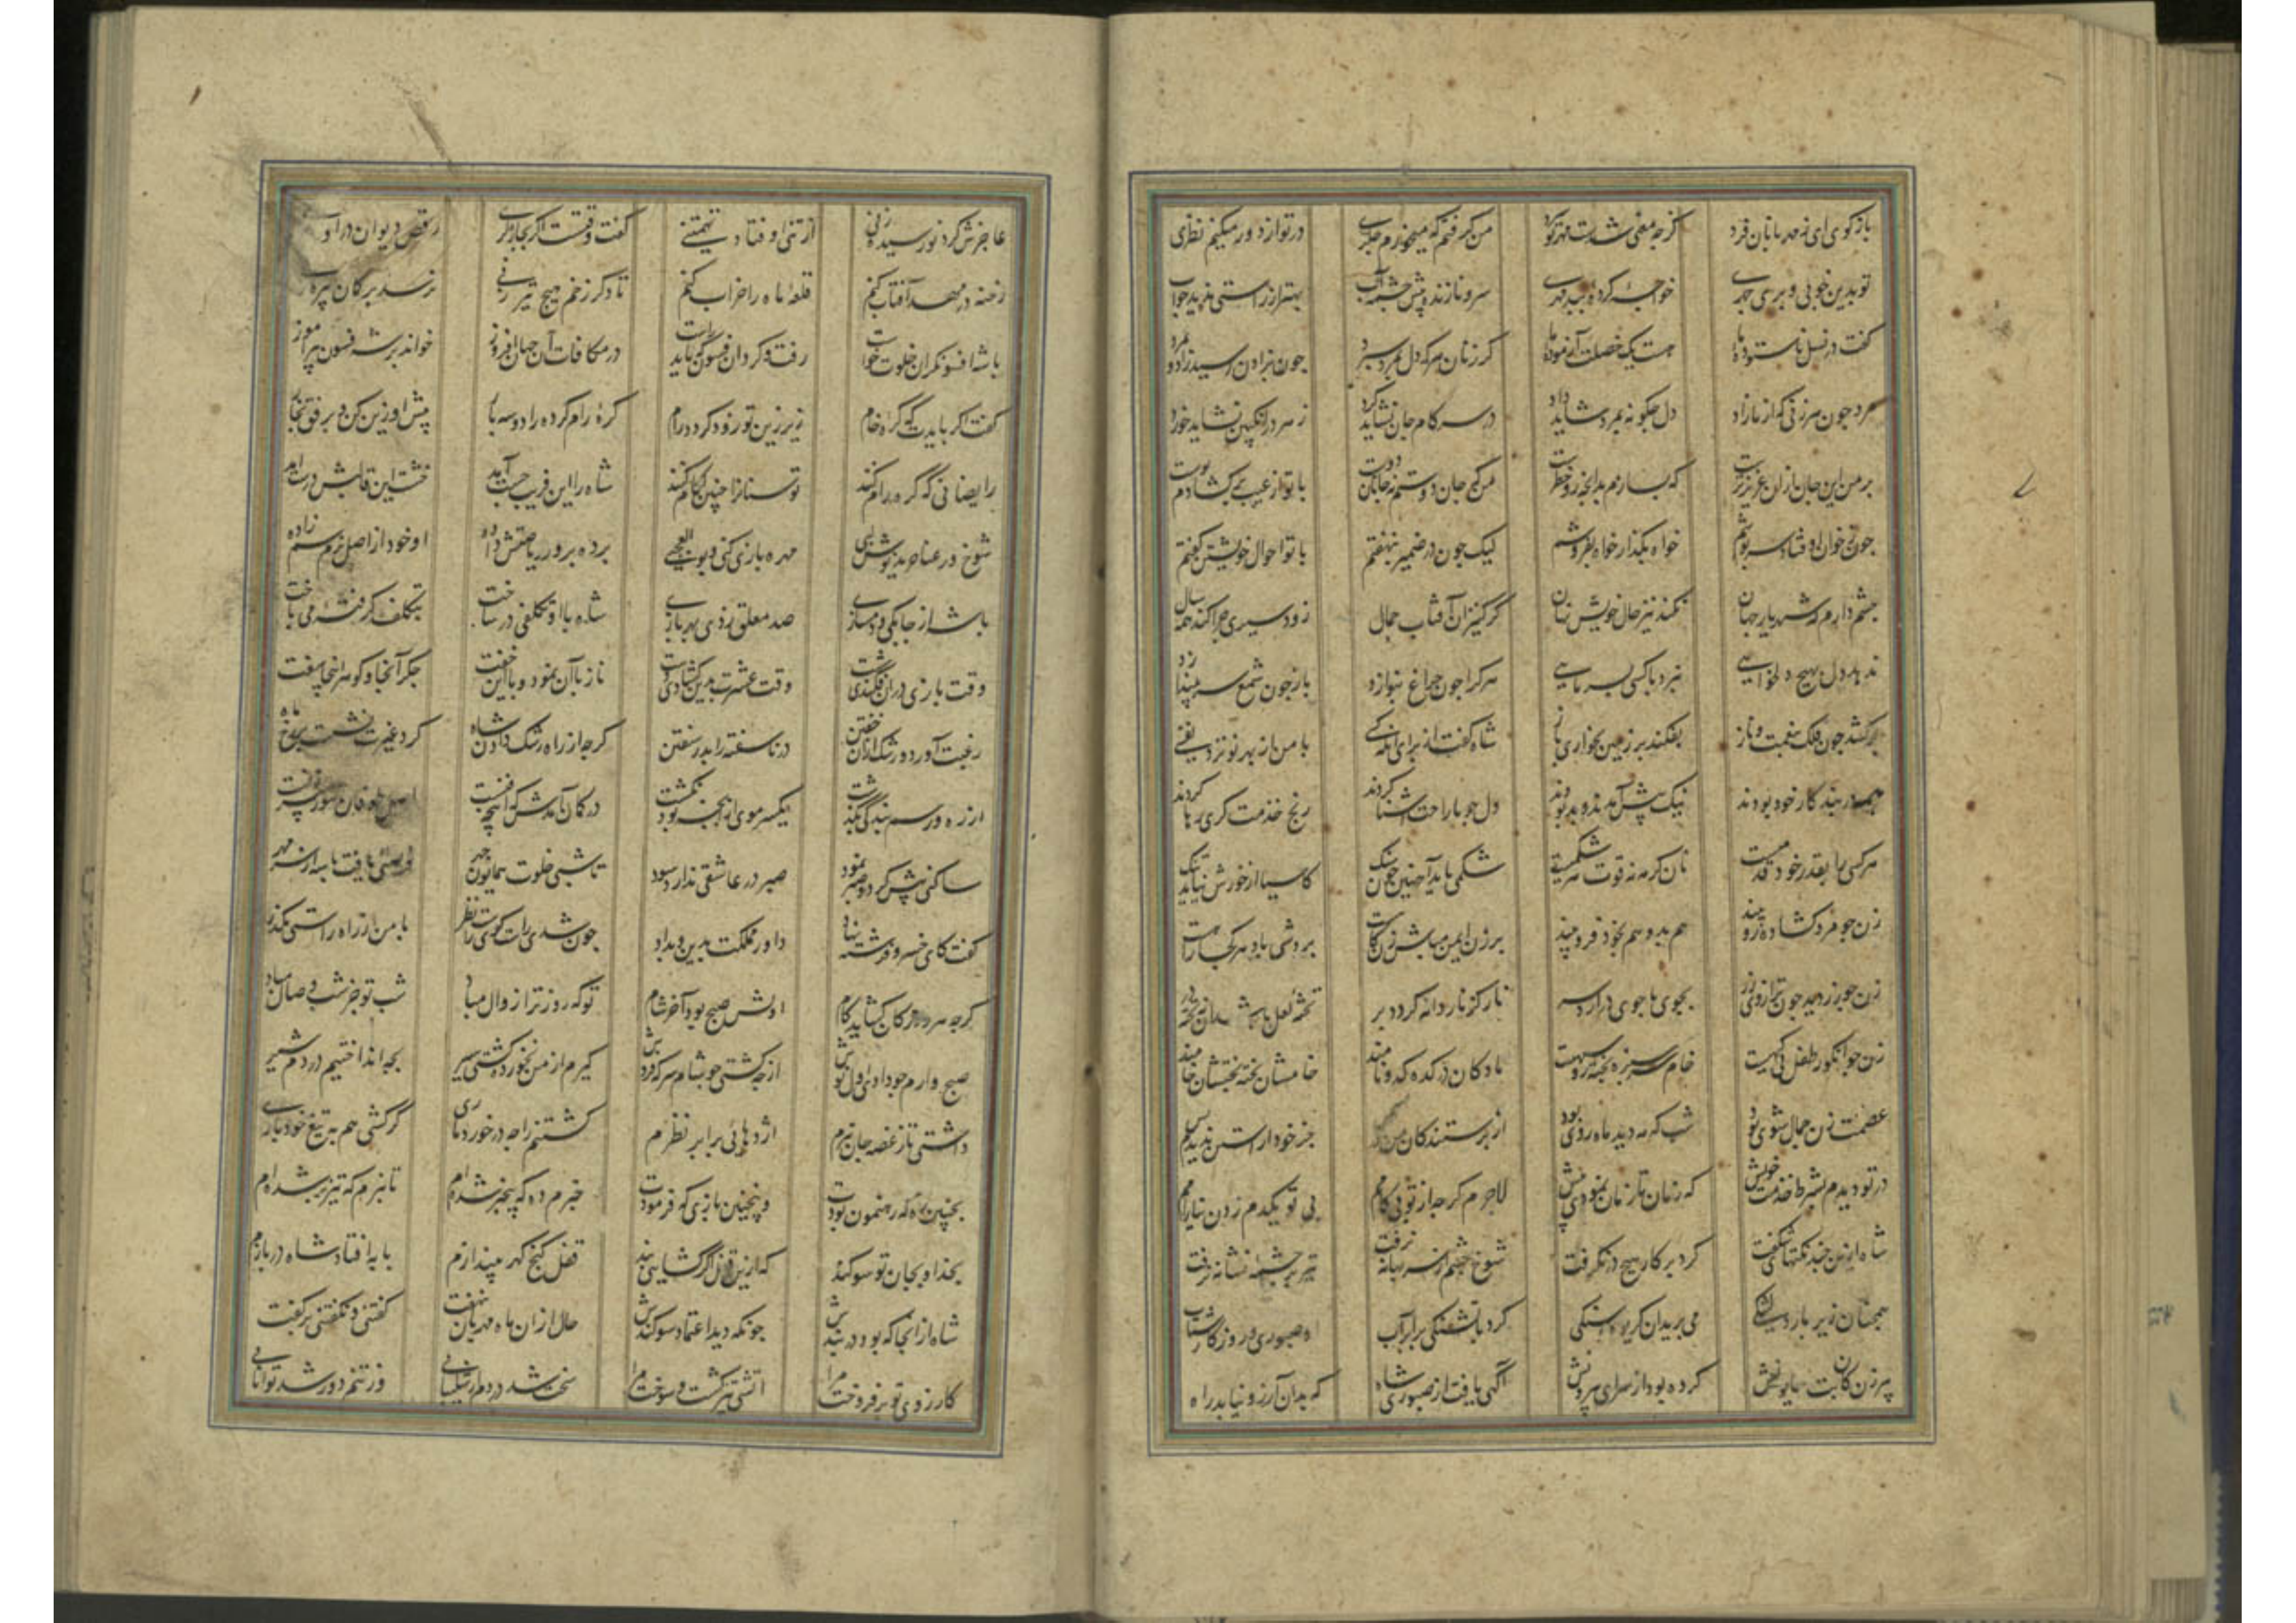 بازگوی ای ز مهربانان فرد گرچه معنی شدت مهر تو سرد من گرفتم که میخورم جگری در تو از دور میکنم نظری
تو بدین خوبی و پری چهری خو چرا کرده ببد مهری سرو نازنده پیش چشمه آب بهتر از راستی ندید جواب
گفت در نسل ناستوده ما هست یک خصلت آزموده ما کز زنان هر که دل بمرد سپرد چون بزادن رسید زاد و مرد
مرد چون هر زنی که از ما زاد دل چگونه بمرد شاید داد در سر کام جان نشاید کرد زهر در انگبین نشاید خورد
بر من این جان از آن عزیزترست که سپارم بدانچه زو خطرست من که جان دوستم نه جانان دوست با تو از عیبه برگشادم پوست
چون ز خوان اوفتاد سرپوشم خواه بگذار خواه بفروشم لیک چون در ضمیر ننهفتم با تو احوال خویشتن گفتم
چشم دارم که شهریار جهان نکند نیز حال خویش نهان کز کنیزان آفتاب جمال زود سیری چرا کند همه سال
ندهد دل بهیچ دلخواهی نبرد با کسی بسر ماهی هر کرا چون چراغ بنوازد باز چون شمع سر بیندازد
برکشد چون فلک بنعمت و ناز بفکند بر زمین بخواری باز شاه گفت از برای آنکه کسی با من از مهر تو نزد نفسی
همه در بند کار خود بودند نیک پیش آمدند و بد بودند دل چو با راحت آشنا کردند رنج خدمت گری رها کردند
هر کسی را بقدر خود قدمست نان گرمه نه قوت هر شکمست شکمی باید آهنین چون سنگ کاسیا از خورش نیاید تنگ
زن چو مرد گشاده رو بیند هم بدو هم بخود فرو بیند بر زن ایمن مباش زن کاهست بردش باد هر کجا راهست
زن چو زر دید چون ترازوی زر بجوی با جوی درآرد سر نار کز نار دانه گردد پر پخته لعل باشد خام در
زن چو انگور طفل بی گنهست خام سرسبز و پخته روسیهست مادگان در کده کدو نامند خامشان پخته پختشان خامند
عصمت زن جمال شوی بود شب که مه دید ماه روی بود از پرستندگان من در کس جز خود آراستن ندیدم بس
در تو دیدم بشرط خدمت خویش که زمان تا زمان نمودی بیش لاجرم گرچه از تو بی کامم بی تو یکدم زدن نیارامم
شاه ازین چند نکتهای شگفت کرد بر کار هیچ در نگرفت شوخ چشم از سر بهانه نرفت تیر بر چشمه نشانه نرفت
همچنان زیر بار دلتنگی می برید آن کریوه سنگی کرد با تشنگی برابر آب او صبوری و روزگار شتاب
پیرزن کان بت همایونش کرده بود از سرای بیرونش آگهی یافت از صبوری شاه که بدان آرزو نیابد راه
عاجزش کرد نو رسیده زنی از تنی اوفتاد تهمتنی گفت وقتست اگر بچاره گری رقص دیوان درآورم
رخنه در مهد آفتاب کنم قلعه ماه را خراب کنم تا دگر زخم هیچ تیر زنی نرسد بر کمان پیرزنی
با شه افسونگرانه خلوت خواست رفت و کرد آن فسون که باید راست در مکافات آن جهان افروز خواند بر شه فسون پیرآموز
گفت اگر بایدت که کره خام زیر زین تو زود گردد رام کره رام کرده را دو سه بار پیش او زین کن و برفق بخار
رایضانی که کره رام کنند توسنانرا چنین لگام کنند شاه را این فریب چست آمد خشت این قالبش درست آمد
شوخ و رعنا خرید نوش لبی مهره بازی کنی و بوالعجبی برده پرور ریاضتش داده او خود از اصل نرم سم زاده
با شه از چابکی و دمسازی صد معلق زدی بهر بازی شاه با او تکلفی در ساخت بتکلف گرفته می باخت
وقت بازی در آن فکندی شست وقت عشرت بدین گشادی دست ناز با آن نمود و با این خفت جگر آنجا و گوهر اینجا سفت
رغبت آورد و رشک از آن خفتن در ناسفته را بدر سفتن گرچه از راه رشک دادن شاه گرد غیرت نشست بر رخ ماه
از ره و رسم بندگی نگذشت یکسر موی از آنچه بود نگشت در گمان آمدش که این چه فنست اصل طوفان تنور پیرزنست
ساکنی پیش کرد و صبر نمود صبر در عاشقی ندارد سود تا شبی خلوت همایون چهر فرصتی یافت با شه از سر مهر
گفت کای خسرو فرشته نهاد داور مملکت بدین و بداد چون شدی راست گوی و راست نظر با من از راه راستی مگذر
گرچه هر روز کان گشاید کام اولش صبح بود آخر شام تو که روز ترا زوال مباد شب تو جز شب وصال مباد
صبح وارم چو دادی اول نوش از چه گشتی چو شام سرکه فروش گیرم از من نخورده گشتی سیر بچه انداختیم در دم شیر
داشتی تا ز غصه جان نبرم اژدهائی برابر نظرم کشتنم را چه در خورد ماری گر کشی هم به تیغ خود باری
بچنین ره که رهنمون بودت و چنین بازی که فرمودت خبرم ده که بیخبر شده ام تا نپرم که تیزپر شده ام
بخدا و بجان تو سوگند که ازین قفل اگر گشایی بند قفل گنج گهر بیندازم با به افتاد شاه در بازم
شاه از آنجا که بود در بندش چونکه دید اعتماد سوگندش حال از آن ماه مهربان ننهفت گفتنی و نگفتنی بر گفت
کارزوی تو بر فروخت مرا اتشی بر گشت و سوخت مرا سخت شد دردم از شکیبائی وز تنم دور شد توانائی